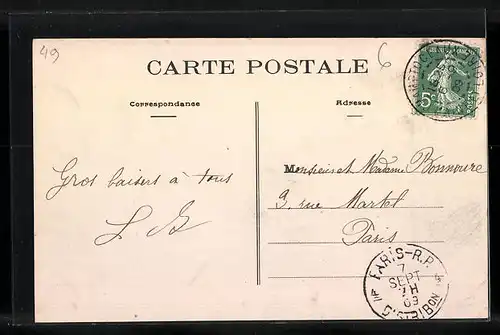 49
6
CARTE POSTALE
Correspondance
Adresse
5c
POSTES
Gros baisers à tous
L. G
Monsieur et Madame Bonnoure
3, rue Martel
Paris
PARIS - R.P.
7
SEPT
7H
09
DISTRIBON